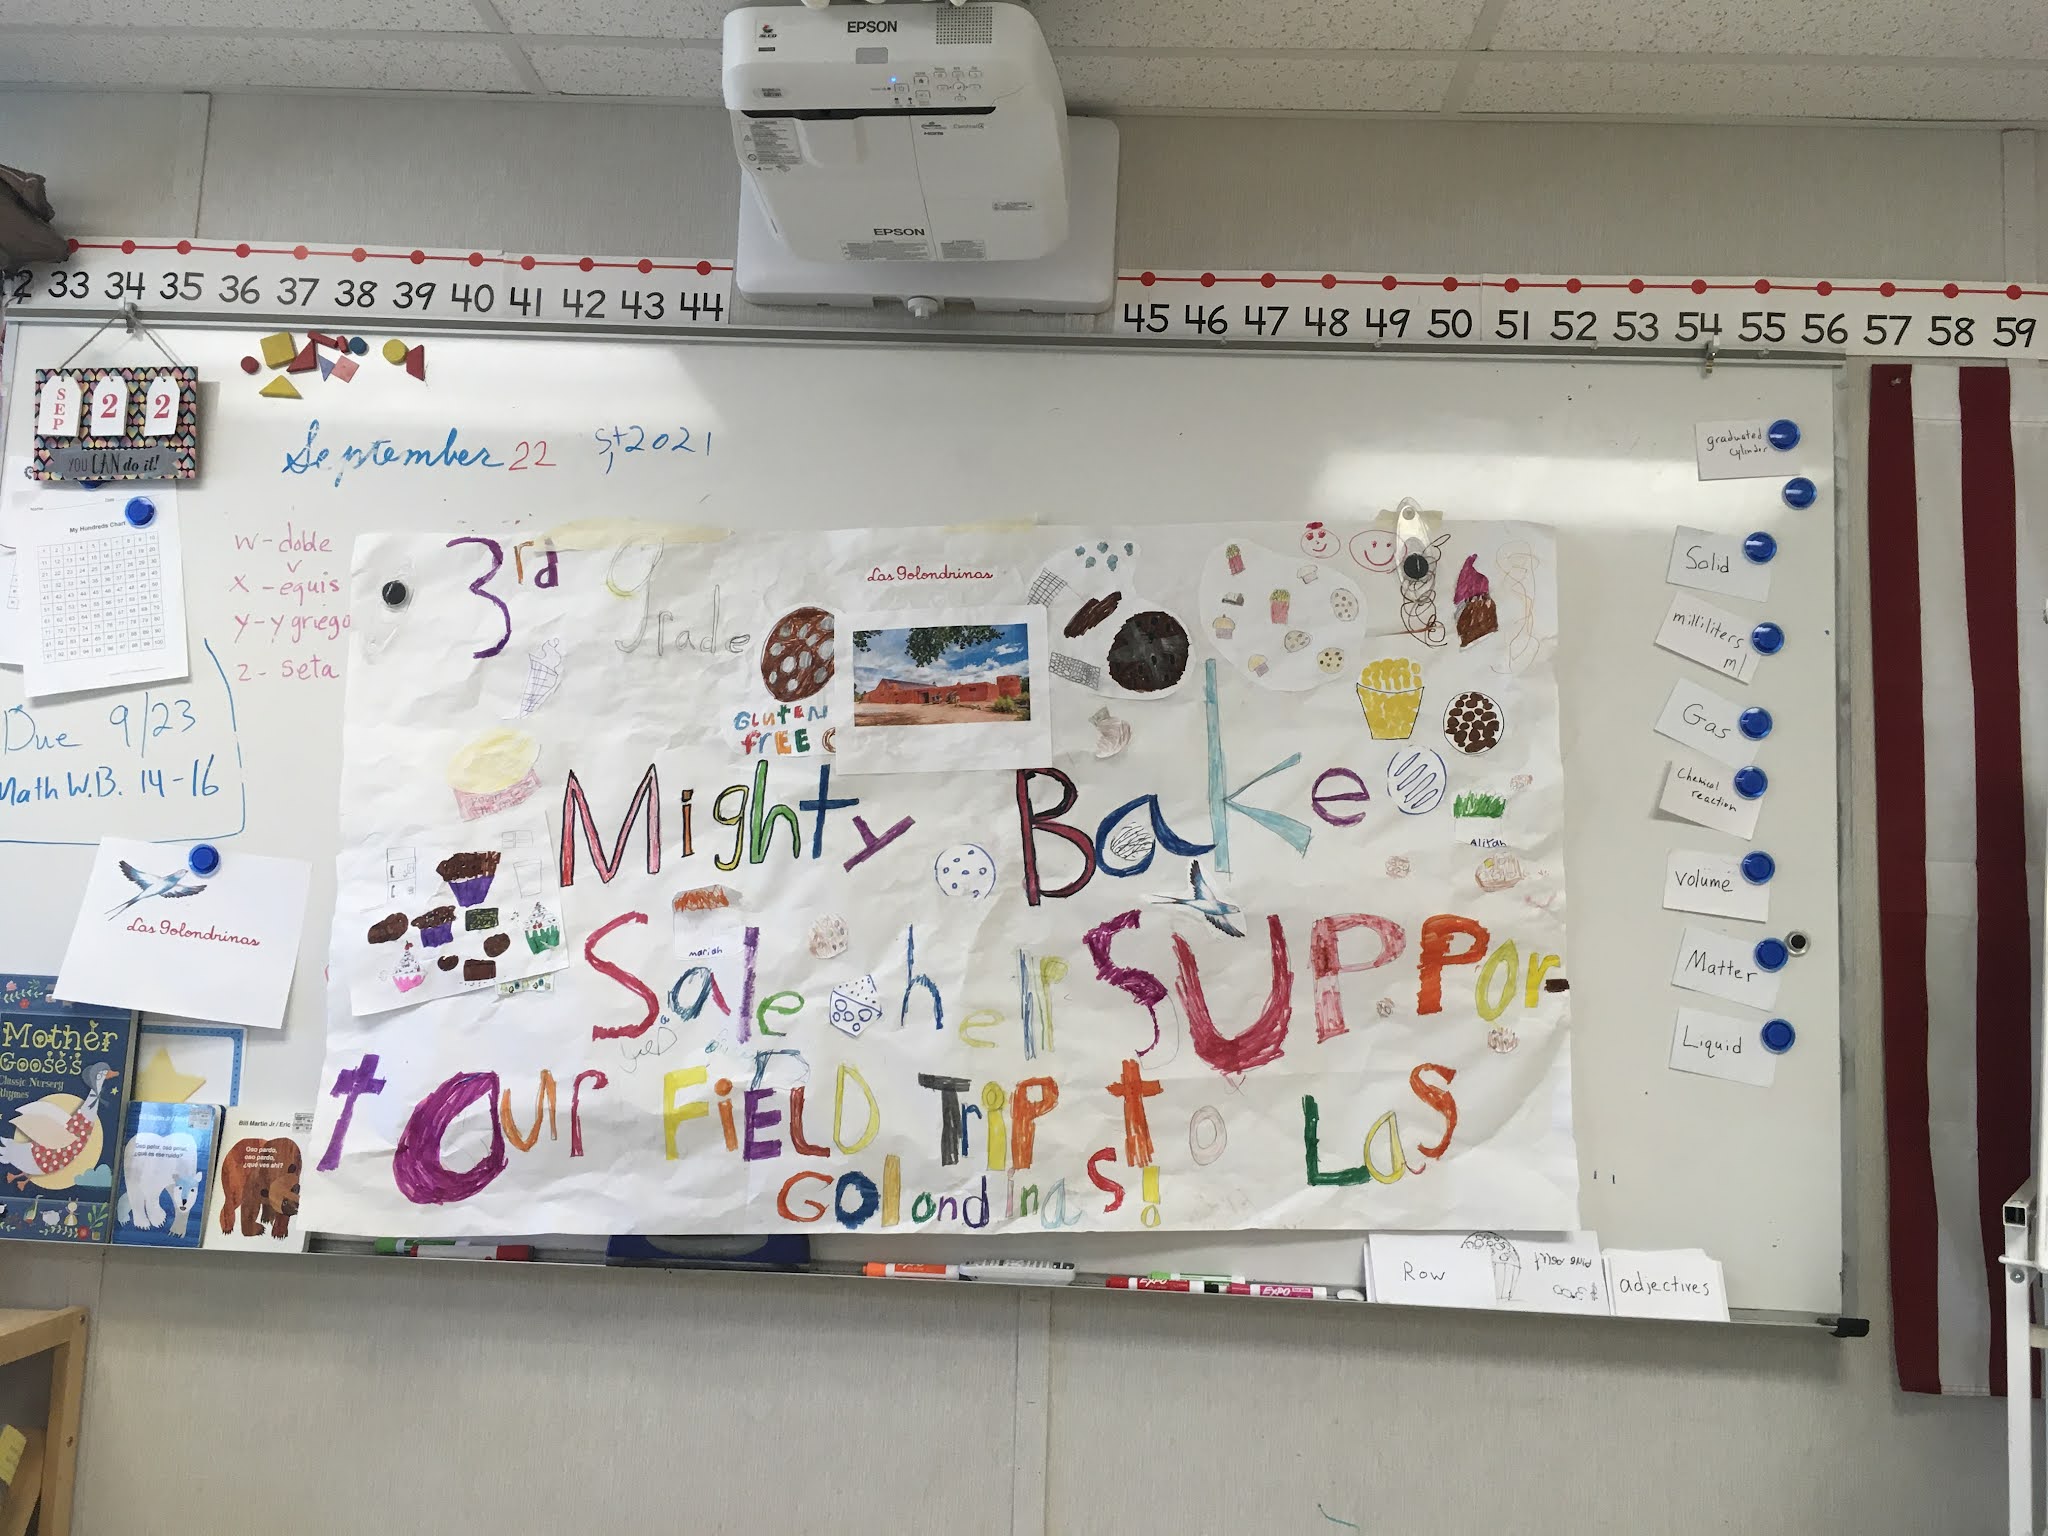 EPSON
EPSON
33 34 35 36 37 38 39 40 41 42 43 44
45 46 47 48 49 50 51 52 53 54 55 56 57 58 59
SEP 2 2
YOU CAN do it!
September 22 st, 2021
My Hundreds Chart
w - doble v
x - equis
y - y griego
z - seta
Due 9/23
Math W.B. 14-16
Las golondrinas
Mother
Goose's
Classic Nursery
Rhymes
Bill Martin Jr / Eric
Oso pardo,
oso pardo,
¿qué ves ahí?
3rd grade
Las golondrinas
GLUTEN
FREE
Mighty Bake
Alitah
Sale help SUPPor-
mariah
t our FiELD TriP to Las
GOlondinas!
graduated
cylinder
Solid
milliliters
ml
Gas
Chemical
reaction
volume
Matter
Liquid
EXPO
EXPO
Row
$3.00
adjectives